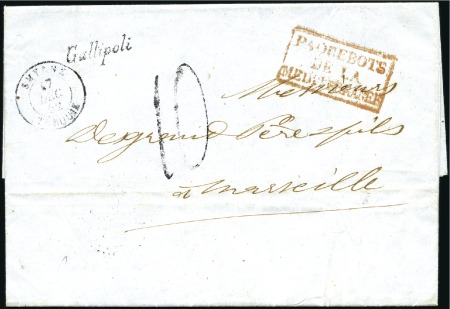 Gallipoli
SMYRNE
17
DEC
TURQUIE
PAQUEBOTS
DE LA
MEDITERRANEE
10
Messieurs
Desgrand Père & fils
à Marseille